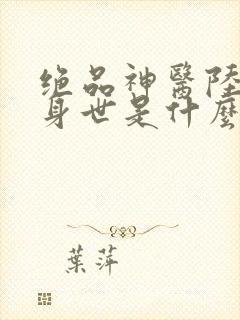 绝品神醫陸
身世是什麼
葉萍